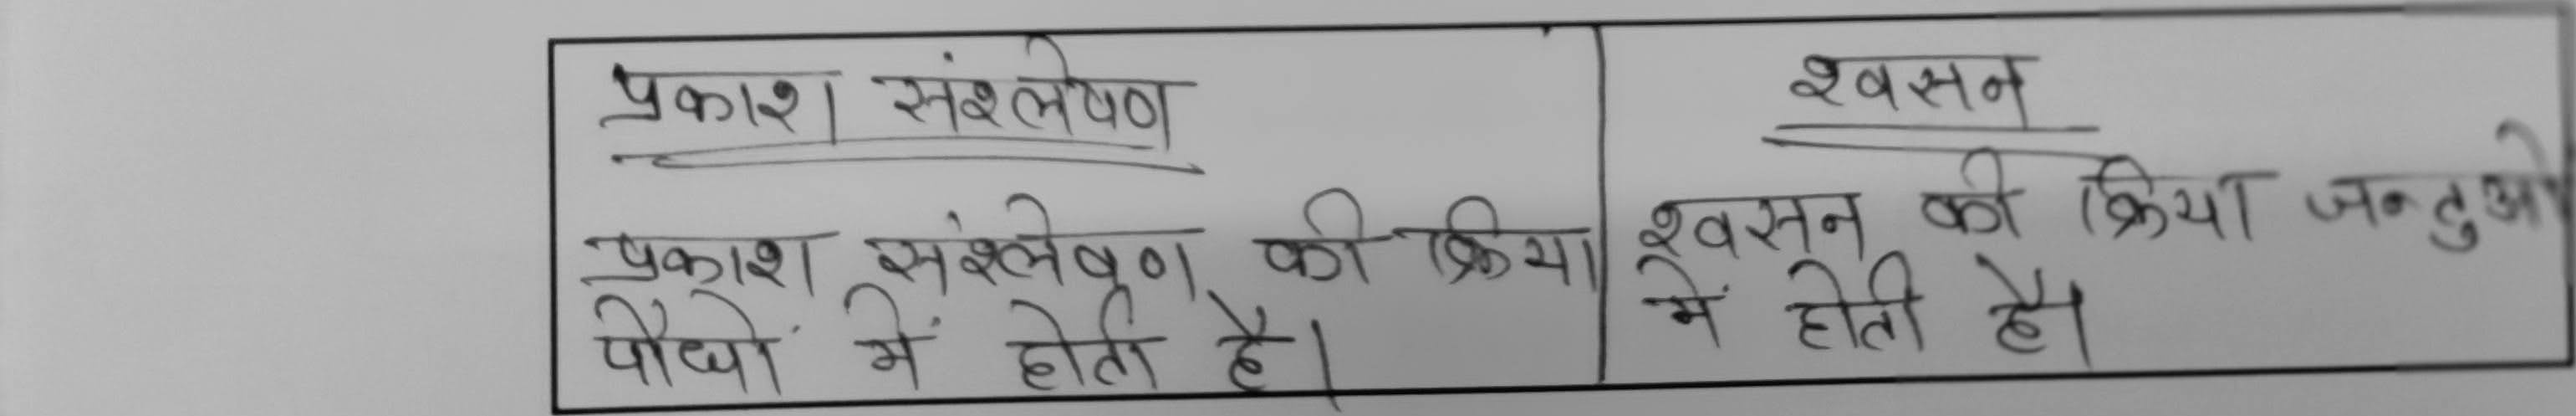 प्रकाश संश्लेषण
प्रकाश संश्लेषण की क्रिया
पौधों में होती है।
श्वसन
श्वसन की क्रिया जन्तुओ
में होती है।